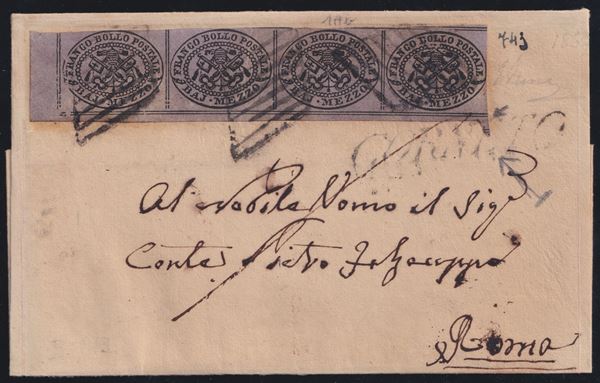 FRANCO BOLLO POSTALE
BAJ · MEZZO
FRANCO BOLLO POSTALE
BAJ · MEZZO
FRANCO BOLLO POSTALE
BAJ · MEZZO
FRANCO BOLLO POSTALE
BAJ · MEZZO
743
Al Nobile Uomo il Sigr
Conte Pietro
Roma